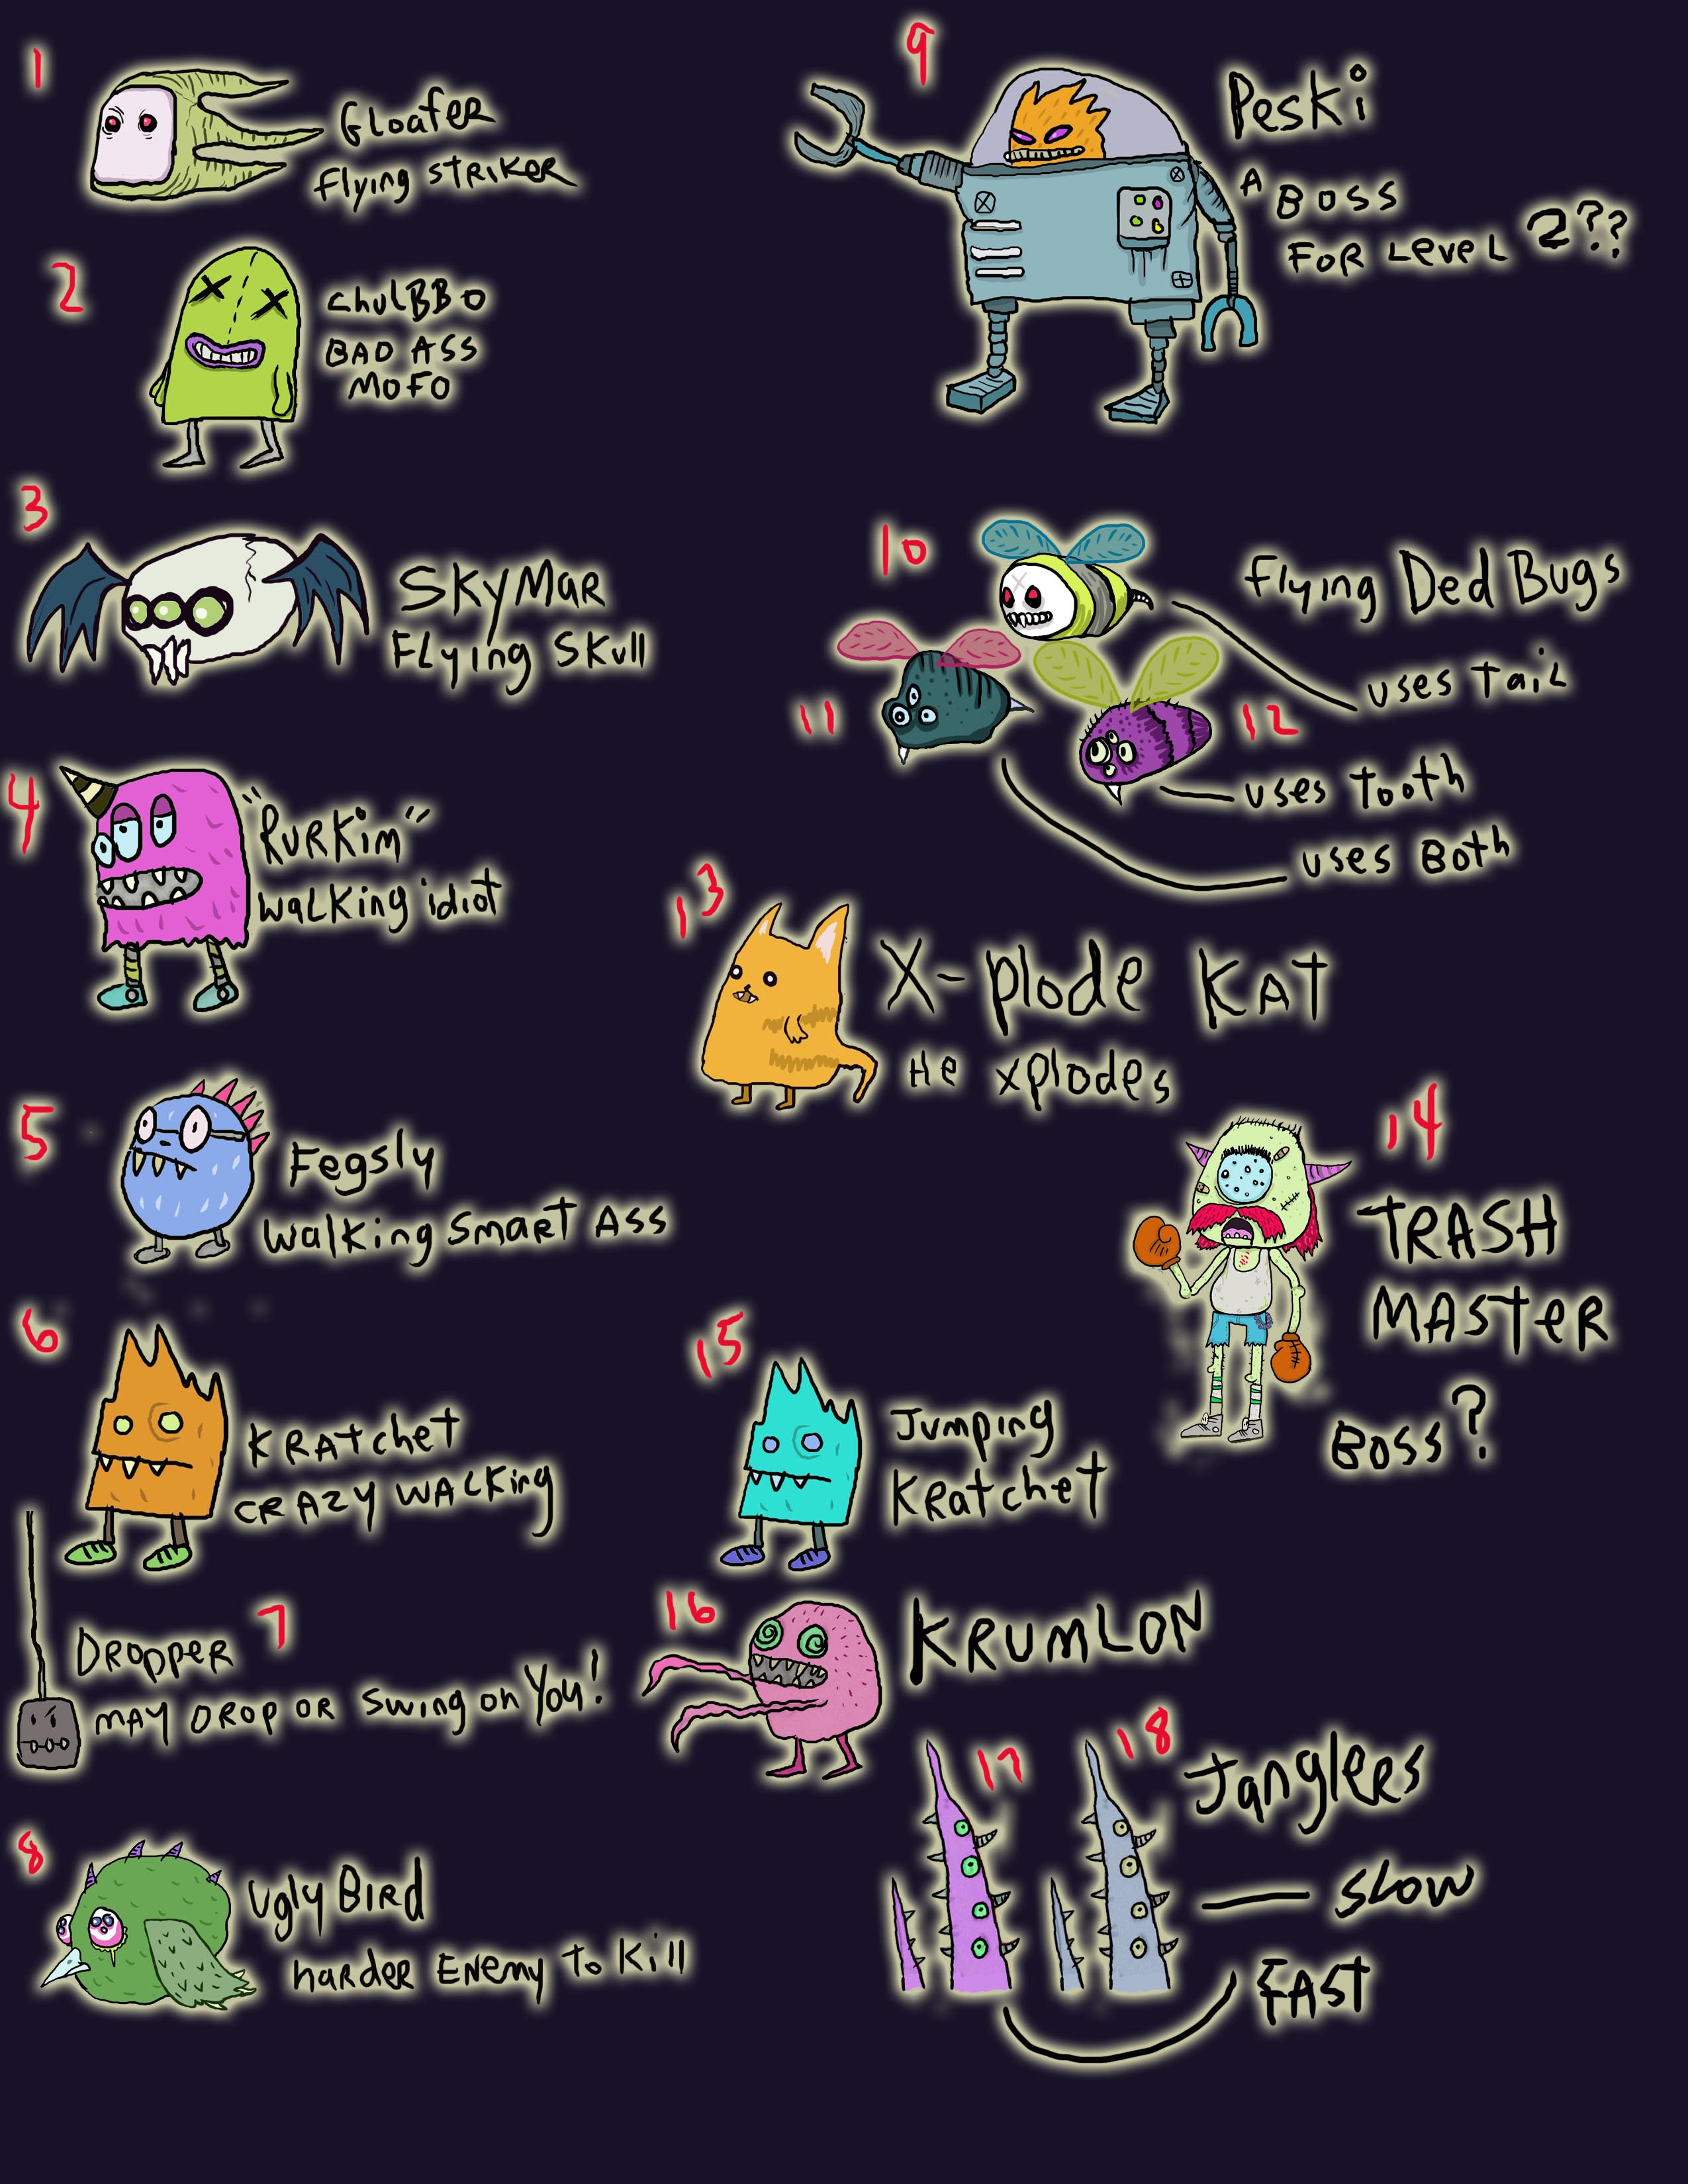 1
Gloafer
Flying Striker
2
ChulBBo
BAD ASS
MOFO
3
SkyMar
Flying Skull
4
"Rurkim"
walking idiot
5
Fegsly
walking smart Ass
6
Kratchet
CRAZY WALKing
7
Dropper
MAY DROP OR Swing on You!
8
Ugly Bird
harder Enemy to Kill
9
Peski
A BOSS
FOR LeveL 2??
10
Flying Ded Bugs
uses Tail
11
12
uses Tooth
uses Both
13
X-plode KAT
He xplodes
14
TRASH
MASTeR
BOSS?
15
Jumping
Kratchet
16
KRUMLON
17
18
Janglers
SLOW
FAST